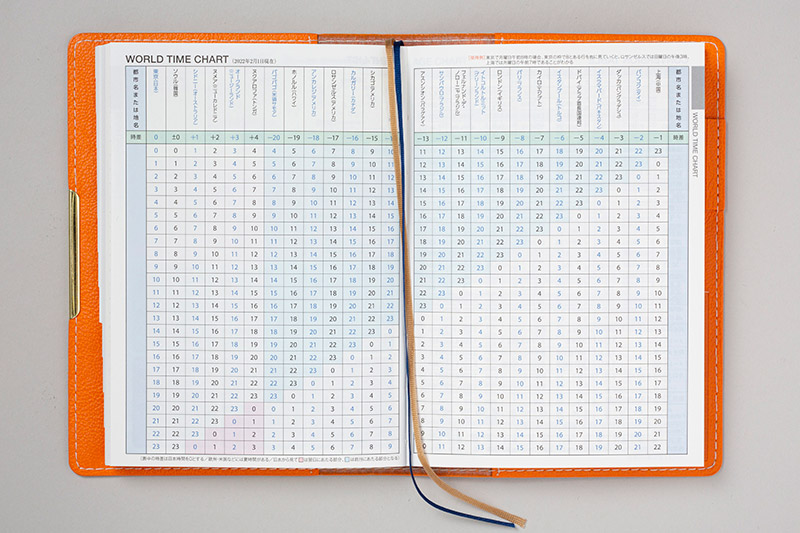 WORLD TIME CHART (2022年2月1日現在)
都市名または地名
東京(日本)
ソウル(韓国)
シドニー(オーストラリア)
ヌメア(ニューカレドニア)
オークランド(ニュージーランド)
ヌクアロファ(トンガ)
パゴパゴ(米領サモア)
ホノルル(ハワイ)
アンカレジ(アメリカ)
ロサンゼルス(アメリカ)
カルガリー(カナダ)
シカゴ(アメリカ)
時差 0 ±0 +1 +2 +3 +4 −20 −19 −18 −17 −16 −15
0 0 1 2 3 4 4 5 6 7 8 9 10
1 1 2 3 4 5 5 6 7 8 9 10 11
2 2 3 4 5 6 6 7 8 9 10 11 12
3 3 4 5 6 7 7 8 9 10 11 12 13
4 4 5 6 7 8 8 9 10 11 12 13 14
5 5 6 7 8 9 9 10 11 12 13 14 15
6 6 7 8 9 10 10 11 12 13 14 15 16
7 7 8 9 10 11 11 12 13 14 15 16 17
8 8 9 10 11 12 12 13 14 15 16 17 18
9 9 10 11 12 13 13 14 15 16 17 18 19
10 10 11 12 13 14 14 15 16 17 18 19 20
11 11 12 13 14 15 15 16 17 18 19 20 21
12 12 13 14 15 16 16 17 18 19 20 21 22
13 13 14 15 16 17 17 18 19 20 21 22 23
14 14 15 16 17 18 18 19 20 21 22 23 0
15 15 16 17 18 19 19 20 21 22 23 0 1
16 16 17 18 19 20 20 21 22 23 0 1 2
17 17 18 19 20 21 21 22 23 0 1 2 3
18 18 19 20 21 22 22 23 0 1 2 3 4
19 19 20 21 22 23 23 0 1 2 3 4 5
20 20 21 22 23 0 0 1 2 3 4 5 6
21 21 22 23 0 1 1 2 3 4 5 6 7
22 22 23 0 1 2 2 3 4 5 6 7 8
23 23 0 1 2 3 3 4 5 6 7 8 9
アスンシオン(パラグアイ)
サンパウロ(ブラジル)
ロンドン(イギリス)
パリ(フランス)
カイロ(エジプト)
イスタンブール(トルコ)
ドバイ(アラブ首長国連邦)
イスラマバード(パキスタン)
ダッカ(バングラデシュ)
バンコク(タイ)
上海(中国)
都市名または地名
−13 −12 −11 −10 −9 −8 −7 −6 −5 −4 −3 −2 −1 時差
11 12 13 14 15 16 17 18 19 20 21 22 23
12 13 14 15 16 17 18 19 20 21 22 23 0
13 14 15 16 17 18 19 20 21 22 23 0 1
14 15 16 17 18 19 20 21 22 23 0 1 2
15 16 17 18 19 20 21 22 23 0 1 2 3
16 17 18 19 20 21 22 23 0 1 2 3 4
17 18 19 20 21 22 23 0 1 2 3 4 5
18 19 20 21 22 23 0 1 2 3 4 5 6
19 20 21 22 23 0 1 2 3 4 5 6 7
20 21 22 23 0 1 2 3 4 5 6 7 8
21 22 23 0 1 2 3 4 5 6 7 8 9
22 23 0 1 2 3 4 5 6 7 8 9 10
23 0 1 2 3 4 5 6 7 8 9 10 11
0 1 2 3 4 5 6 7 8 9 10 11 12
1 2 3 4 5 6 7 8 9 10 11 12 13
2 3 4 5 6 7 8 9 10 11 12 13 14
3 4 5 6 7 8 9 10 11 12 13 14 15
4 5 6 7 8 9 10 11 12 13 14 15 16
5 6 7 8 9 10 11 12 13 14 15 16 17
6 7 8 9 10 11 12 13 14 15 16 17 18
7 8 9 10 11 12 13 14 15 16 17 18 19
8 9 10 11 12 13 14 15 16 17 18 19 20
9 10 11 12 13 14 15 16 17 18 19 20 21
10 11 12 13 14 15 16 17 18 19 20 21 22
WORLD TIME CHART